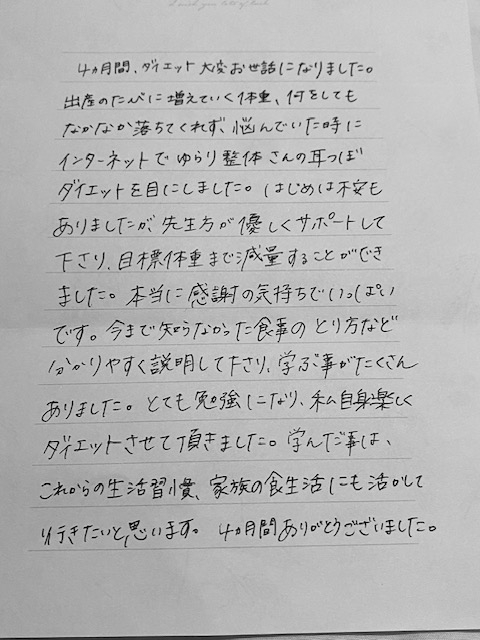 4ヵ月間、ダイエット大変お世話になりました。
出産のたびに増えていく体重、何をしても
なかなか落ちてくれず、悩んでいた時に
インターネットでゆらり整体さんの耳つぼ
ダイエットを目にしました。はじめは不安も
ありましたが、先生方が優しくサポートして
下さり、目標体重まで減量することができ
ました。本当に感謝の気持ちでいっぱい
です。今まで知らなかった食事のとり方など
分かりやすく説明して下さり、学ぶ事がたくさん
ありました。とても勉強になり、私自身楽しく
ダイエットさせて頂きました。学んだ事は、
これからの生活習慣、家族の食生活にも活かして
行きたいと思います。4ヵ月間ありがとうございました。